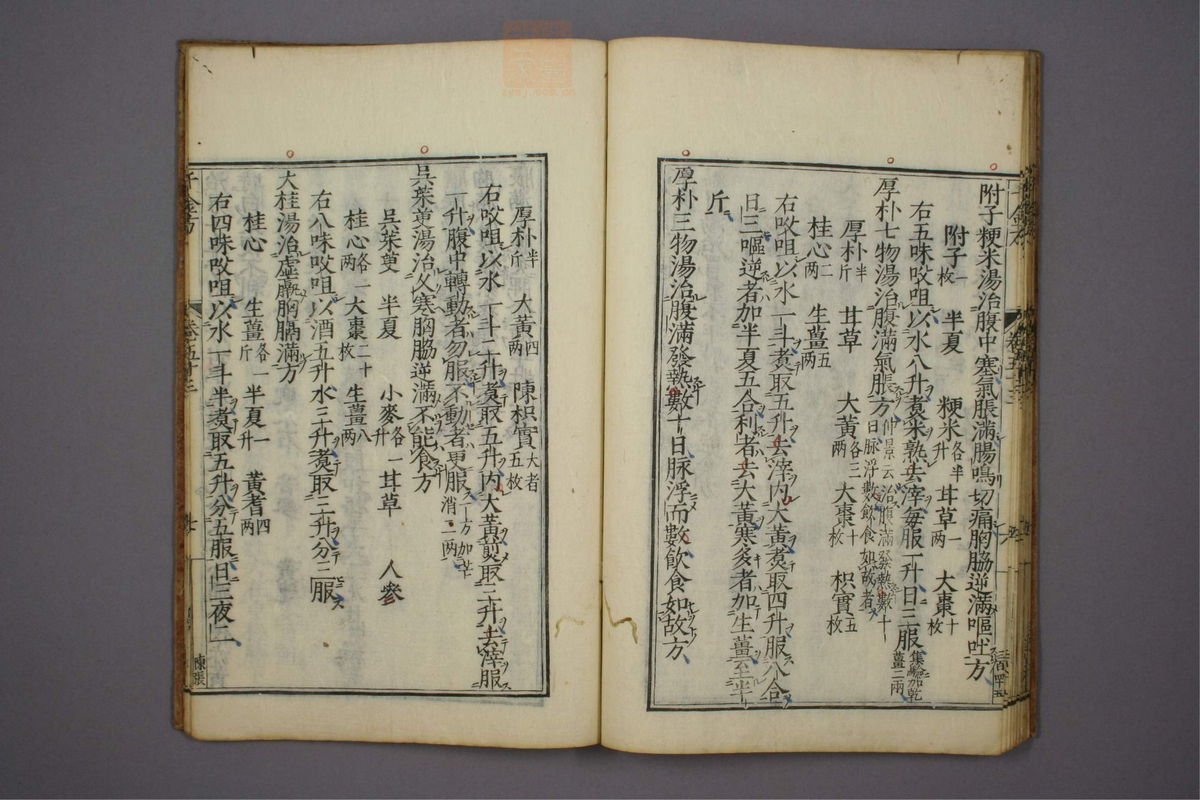 附子粳米湯治腹中寒氣脹滿腸鳴切痛胸脇逆滿嘔吐方
附子一枚 半夏 粳米各半升 甘草一兩 大棗十枚
右五味㕮咀以水八升煮米熟去滓每服一升日三服集驗加乾薑二兩
厚朴七物湯治腹滿氣脹方仲景云治腹滿發熱數十日脉浮數飲食如故者
厚朴半斤 甘草 大黃各三兩 大棗十枚 枳實五枚
桂心二兩 生薑五兩
右㕮咀以水一斗煮取五升去滓內大黃煮取四升服八合
日三嘔逆者加半夏五合利者去大黃寒多者加生薑至半
斤
厚朴三物湯治腹滿發熱數十日脉浮而數飲食如故方
厚朴半斤 大黃四兩 陳枳實大者五枚
右㕮咀以水一斗二升煮取五升內大黃煎取三升去滓服
一升腹中轉動者勿服不動者更服一方加芒消二兩
吳茱萸湯治久寒胸脇逆滿不能食方
吳茱萸 半夏 小麥各一升 甘草 人參
桂心各一兩 大棗二十枚 生薑八兩
右八味㕮咀以酒五升水三升煮取三升分三服
大桂湯治虛羸胸膈滿方
桂心 生薑各一斤 半夏一升 黃耆四兩
右四味㕮咀以水一斗半煮取五升分五服日三夜二
千金方
卷五十三
陳張